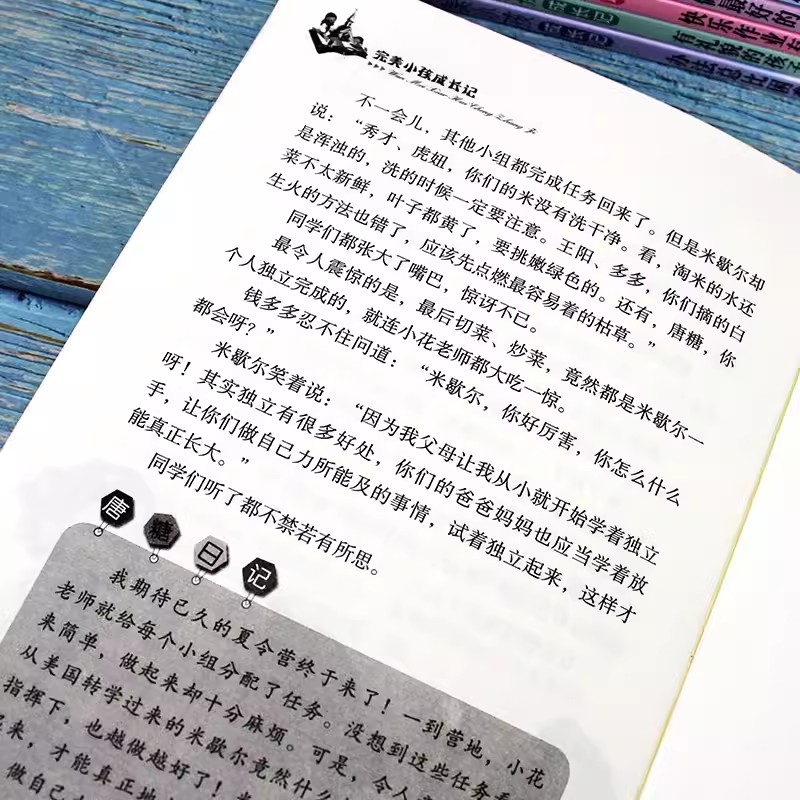 成长记
最好的
快乐作业
成长记
有礼貌的孩子
办法总比困难
完美小孩成长记
Wan Mei Xiao Hai Cheng Zhang Ji
不一会儿，其他小组都完成任务回来了。但是米歇尔却
说：“秀才、虎妞，你们的米没有洗干净。看，淘米的水还
是浑浊的，洗的时候一定要注意。王阳、多多，你们摘的白
菜不太新鲜，叶子都黄了，要挑嫩绿色的。还有，唐糖，你
生火的方法也错了，应该先点燃最容易着的枯草。”
同学们都张大了嘴巴，惊讶不已。
最令人震惊的是，最后切菜、炒菜，竟然都是米歇尔一
个人独立完成的，就连小花老师都大吃一惊。
钱多多忍不住问道：“米歇尔，你好厉害，你怎么什么
都会呀？”
米歇尔笑着说：“因为我父母让我从小就开始学着独立
呀！其实独立有很多好处，你们的爸爸妈妈也应当学着放
手，让你们做自己力所能及的事情，试着独立起来，这样才
能真正长大。”
同学们听了都不禁若有所思。
唐糖日记
我期待已久的夏令营终于来了！一到营地，小花
老师就给每个小组分配了任务。没想到这些任务看
来简单，做起来却十分麻烦。可是，令人
从美国转学过来的米歇尔竟然什么
指挥下，也越做越好了！
来，才能真正地
做自己